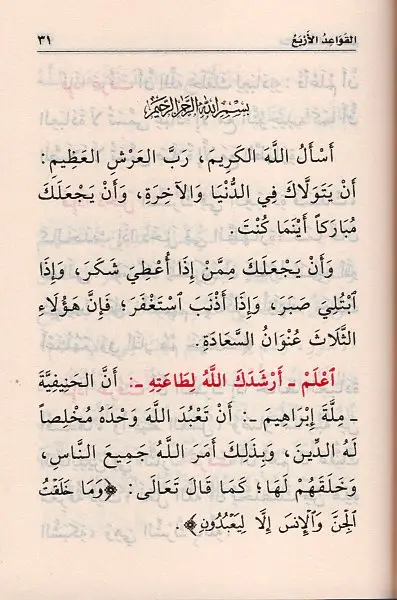 القَوَاعِدُ الأَرْبَعُ ٣١
بِسْمِ اللَّهِ الرَّحْمَنِ الرَّحِيمِ
أَسْأَلُ اللَّهَ الكَرِيمَ، رَبَّ العَرْشِ العَظِيمِ:
أَنْ يَتَوَلَّاكَ فِي الدُّنْيَا وَالآخِرَةِ، وَأَنْ يَجْعَلَكَ
مُبَارَكاً أَيْنَمَا كُنْتَ.
وَأَنْ يَجْعَلَكَ مِمَّنْ إِذَا أُعْطِيَ شَكَرَ، وَإِذَا
ٱبْتُلِيَ صَبَرَ، وَإِذَا أَذْنَبَ ٱسْتَغْفَرَ؛ فَإِنَّ هَؤُلَاءِ
الثَّلَاثَ عُنْوَانُ السَّعَادَةِ.
ٱعْلَمْ ـ أَرْشَدَكَ اللَّهُ لِطَاعَتِهِ ـ: أَنَّ الحَنِيفِيَّةَ
ـ مِلَّةَ إِبْرَاهِيمَ ـ: أَنْ تَعْبُدَ اللَّهَ وَحْدَهُ مُخْلِصاً
لَهُ الدِّينَ، وَبِذَلِكَ أَمَرَ اللَّهُ جَمِيعَ النَّاسِ،
وَخَلَقَهُمْ لَهَا؛ كَمَا قَالَ تَعَالَى: ﴿وَمَا خَلَقْتُ
ٱلْجِنَّ وَٱلْإِنسَ إِلَّا لِيَعْبُدُونِ﴾.